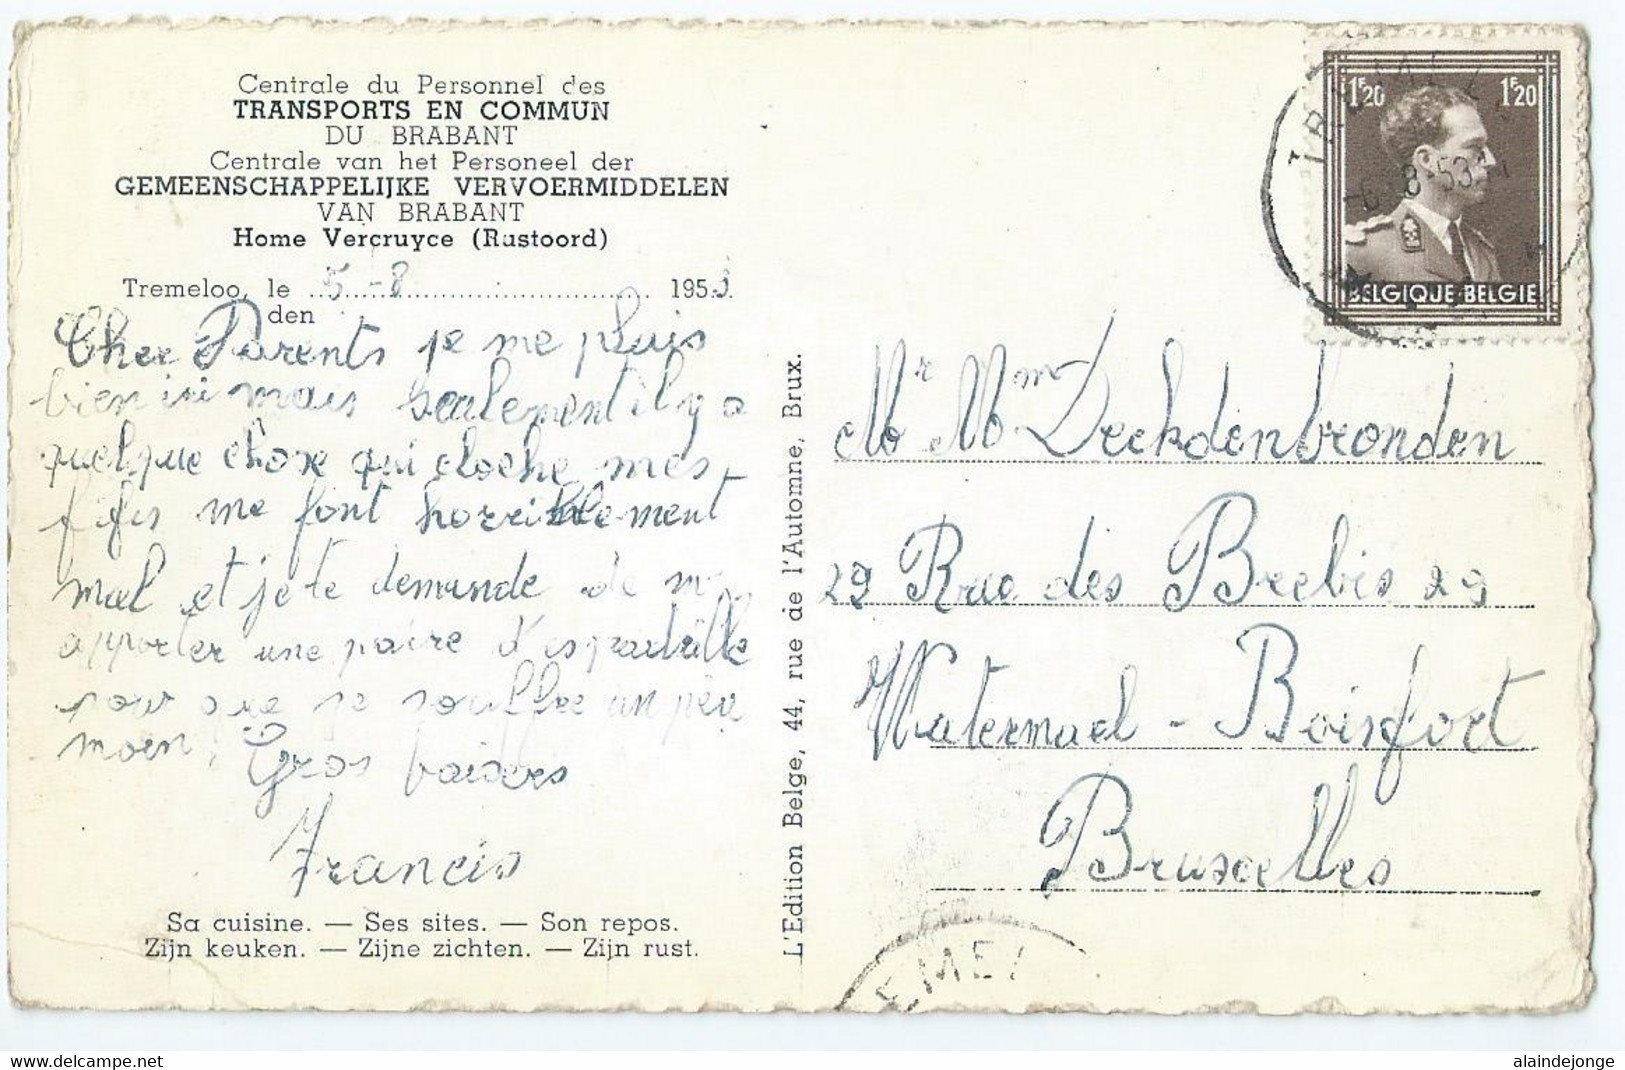 Centrale du Personnel des
TRANSPORTS EN COMMUN
DU BRABANT
Centrale van het Personeel der
GEMEENSCHAPPELIJKE VERVOERMIDDELEN
VAN BRABANT
Home Vercruyce (Rustoord)
Tremeloo, le 5-8 1953
den
Cher Parents je me pluis
bien ici mais sealement il y a
quelque chose qui cloche mes
fifis me font horriblement
mal et je te demande de m
apporter une paire d'
pour que je souffre un peu
moen, Gros baisers
Francis
Sa cuisine. — Ses sites. — Son repos.
Zijn keuken. — Zijne zichten. — Zijn rust.
L'Edition Belge, 44, rue de l'Automne, Brux.
1F20 1F20
TREMEL
-6-8-53
BELGIQUE-BELGIE
Mr Mme Deckdenbronden
29 Rue des Brebis 29
Watermael - Boisfort
Bruxelles
EMEL
delcampe.net
alaindejonge